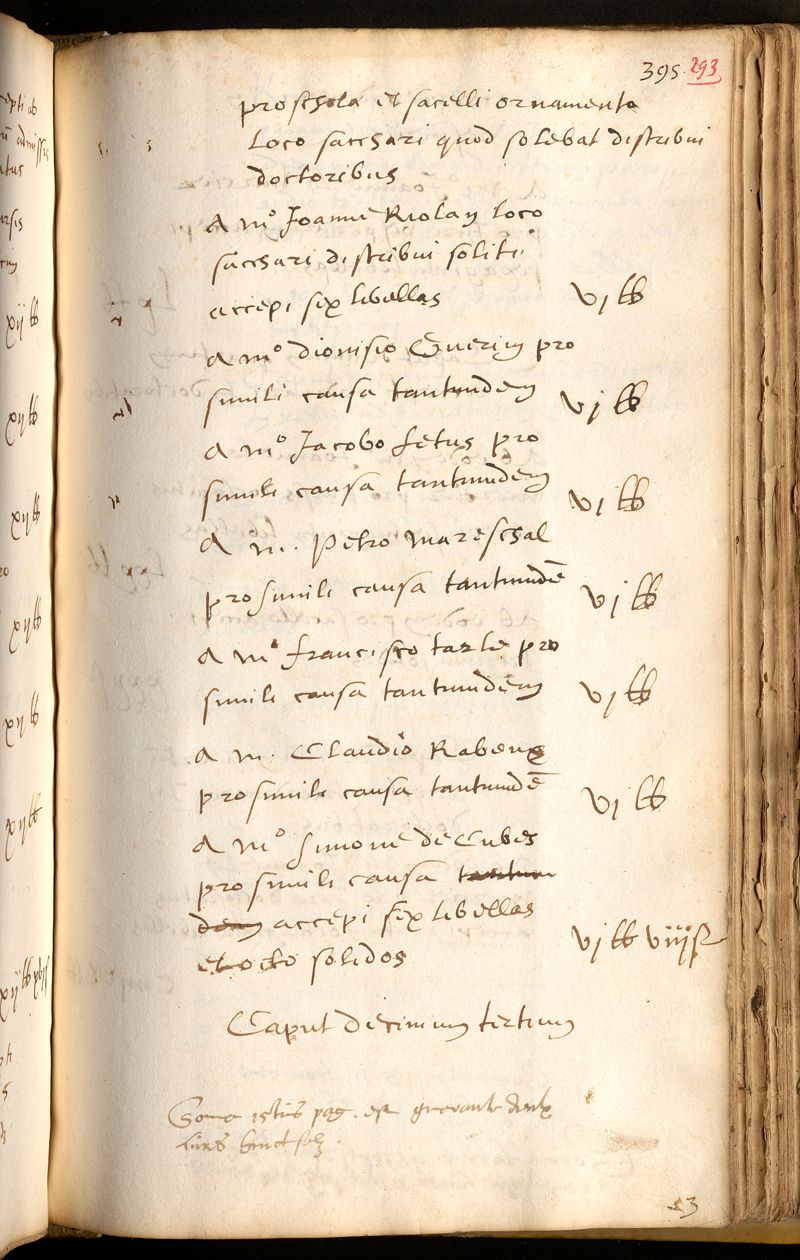 395. 293
pro schola et sacelli ornamento
loco sacchari quod solebat distribui
doctoribus
A mº Joanne Riolan loco
sacchari distribui soliti
accepi sex libellas vj lb
A mº dionisio Guerin pro
simili causa tantundem vj lb
A mº Jacobo Letus pro
simili causa tantundem vj lb
A m. Petro mareschal
pro simili causa tantundē vj lb
A mº francisco tarle pro
simili causa tantundem vj lb
A m. Claudio Rabeux
pro simili causa tantundē vj lb
A mº Simone de Cubes
pro simili causa tantun
dem accepi sex libellas
et octo solidos vj lb viij s
Caput decimum tertium
pag. est quarante deulx
huict solz
53